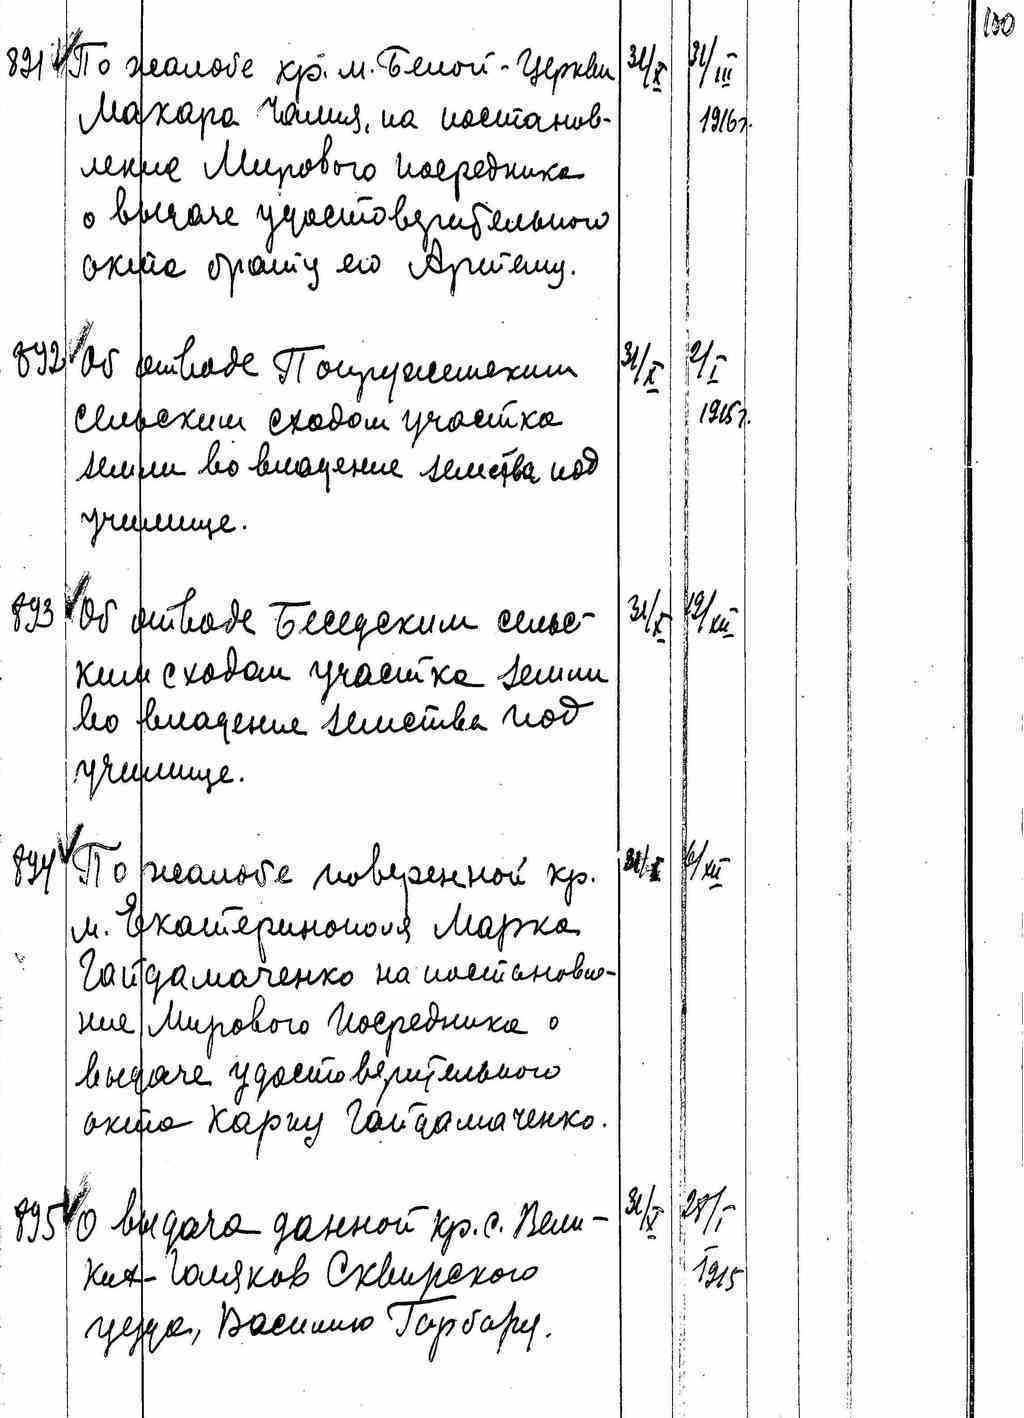 100
891 По жалобе кр. м. Белой-Церкви 31/X 31/III
Макара Чалия, на постанов- 1916г.
ление Мирового Посредника
о выдаче удостоверительного
акта брату его Артему.
892 Об отводе 31/X 2/I
сельским сходом участка 1915г.
земли во владение земства под
училище.
893 Об отводе Беседским сельс- 31/X 19/XII
ким сходом участка земли
во владение земства под
училище.
894 По жалобе поверенной кр. 31/X 6/XII
м. Екатеринополя Марка
Гайдамаченко на постановле-
ние Мирового Посредника о
выдаче удостоверительного
акта Карпу Гайдамаченко.
895 О выдача данной кр. с. Вели- 31/X 28/I
ких-Голяков Сквирского 1915
уезда, Василию Гарбару.